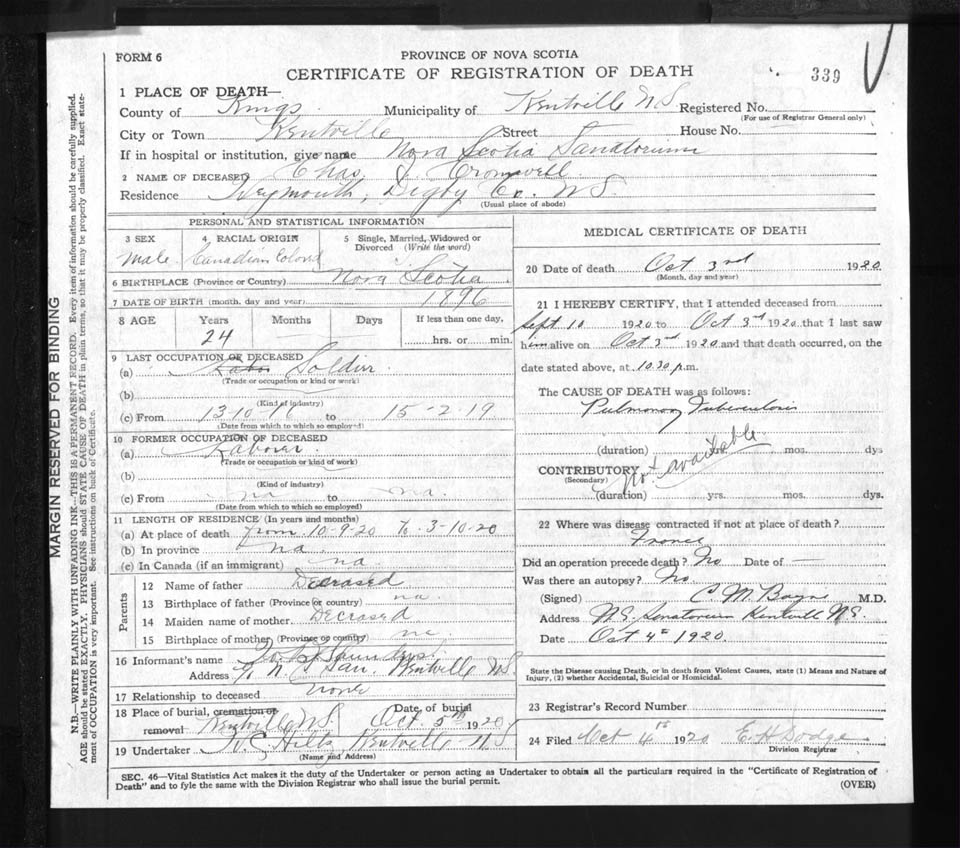 FORM 6
PROVINCE OF NOVA SCOTIA
CERTIFICATE OF REGISTRATION OF DEATH
339
1 PLACE OF DEATH—
County of Kings Municipality of Kentville N.S. Registered No.
(For use of Registrar General only)
City or Town Kentville Street House No.
If in hospital or institution, give name Nova Scotia Sanatorium
2 NAME OF DECEASED Chas J. Cromwell
Residence Weymouth, Digby Co. N.S.
(Usual place of abode)
PERSONAL AND STATISTICAL INFORMATION
3 SEX 4 RACIAL ORIGIN 5 Single, Married, Widowed or Divorced (Write the word)
Male Canadian Colord
6 BIRTHPLACE (Province or Country) Nova Scotia
7 DATE OF BIRTH (month, day and year) 1896
8 AGE Years Months Days If less than one day,
24 hrs. or min.
9 LAST OCCUPATION OF DECEASED
(a) Soldier
(Trade or occupation or kind or work)
(b)
(Kind of industry)
(c) From 13-10-16 to 15-2-19
(Date from which to which so employed)
10 FORMER OCCUPATION OF DECEASED
(a) Laborer
(Trade or occupation or kind of work)
(b)
(Kind of industry)
(c) From na to na.
(Date from which to which so employed)
11 LENGTH OF RESIDENCE (In years and months)
(a) At place of death from 10-9-20 to 3-10-20
(b) In province na
(c) In Canada (if an immigrant) na
Parents
12 Name of father Deceased
13 Birthplace of father (Province or country) na.
14 Maiden name of mother Deceased
15 Birthplace of mother (Province or country) na.
16 Informant's name
Address N.S. San. Kentville N.S.
17 Relationship to deceased none
18 Place of burial, cremation or removal Date of burial
Kentville N.S. Oct. 5th 1920
19 Undertaker Kentville N.S.
(Name and Address)
MEDICAL CERTIFICATE OF DEATH
20 Date of death Oct 3rd 1920
(Month, day and year)
21 I HEREBY CERTIFY, that I attended deceased from
Sept. 10 1920 to Oct 3rd 1920 that I last saw
him alive on Oct 3rd 1920 and that death occurred, on the
date stated above, at 10.30 p.m.
The CAUSE OF DEATH was as follows:
Pulmonary Tuberculosis
(duration) yrs. mos. dys
CONTRIBUTORY Not available
(Secondary)
(duration) yrs. mos. dys.
22 Where was disease contracted if not at place of death?
France
Did an operation precede death? No Date of —
Was there an autopsy? No
(Signed) C M Bayn M.D.
Address N.S. Sanatorium Kentville N.S.
Date Oct 4th 1920.
State the Disease causing Death, or in death from Violent Causes, state (1) Means and Nature of
Injury, (2) whether Accidental, Suicidal or Homicidal.
23 Registrar's Record Number
24 Filed Oct 4th 1920 E H Dodge
Division Registrar
SEC. 46—Vital Statistics Act makes it the duty of the Undertaker or person acting as Undertaker to obtain all the particulars required in the "Certificate of Registration of
Death" and to fyle the same with the Division Registrar who shall issue the burial permit.
(OVER)
MARGIN RESERVED FOR BINDING
N.B.—WRITE PLAINLY WITH UNFADING INK—THIS IS A PERMANENT RECORD. Every item of information should be carefully supplied.
AGE should be stated EXACTLY. PHYSICIANS should STATE CAUSE OF DEATH in plain terms, so that it may be properly classified. Exact statement of OCCUPATION is very important. See instructions on back of Certificate.